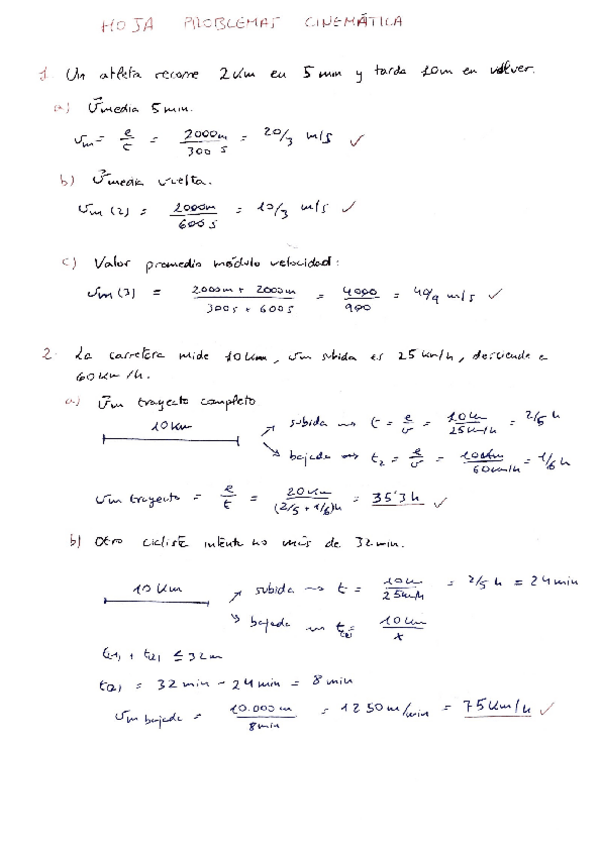 HOJA PROBLEMAS CINEMÁTICA
1. Un atleta recorre 2Km en 5 min y tarda 10m en volver.
a) V⃗media 5min.
Vm = e/t = 2000m/300 s = 20/3 m/s ✓
b) V⃗media vuelta.
Vm (2) = 2000m/600s = 10/3 m/s ✓
c) Valor promedio módulo velocidad:
Vm (3) = 2000m + 2000m/300s + 600s = 4000/900 = 40/9 m/s ✓
2. La carretera mide 10Km, vm subida es 25 km/h, desciende a
60 Km/h.
a) V⃗m trayecto completo
10 Km
subida ⟿ t = e/v = 10km/25km/h = 2/5 h
bajada ⟿ t2 = e/v = 10km/60km/h = 1/6 h
Vm trayecto = e/t = 20km/(2/5 + 1/6)h = 35'3 h ✓
b) Otro ciclista intenta no más de 32min.
10 Km
subida ⟿ t = 10km/25km/h = 2/5 h = 24min
bajada ⟿ t2 = 10km/x
t(1) + t(2) ≤ 32m
t(2) = 32 min - 24 min = 8 min
Vm bajada = 10.000m/8min = 1250 m/min = 75 Km/h ✓